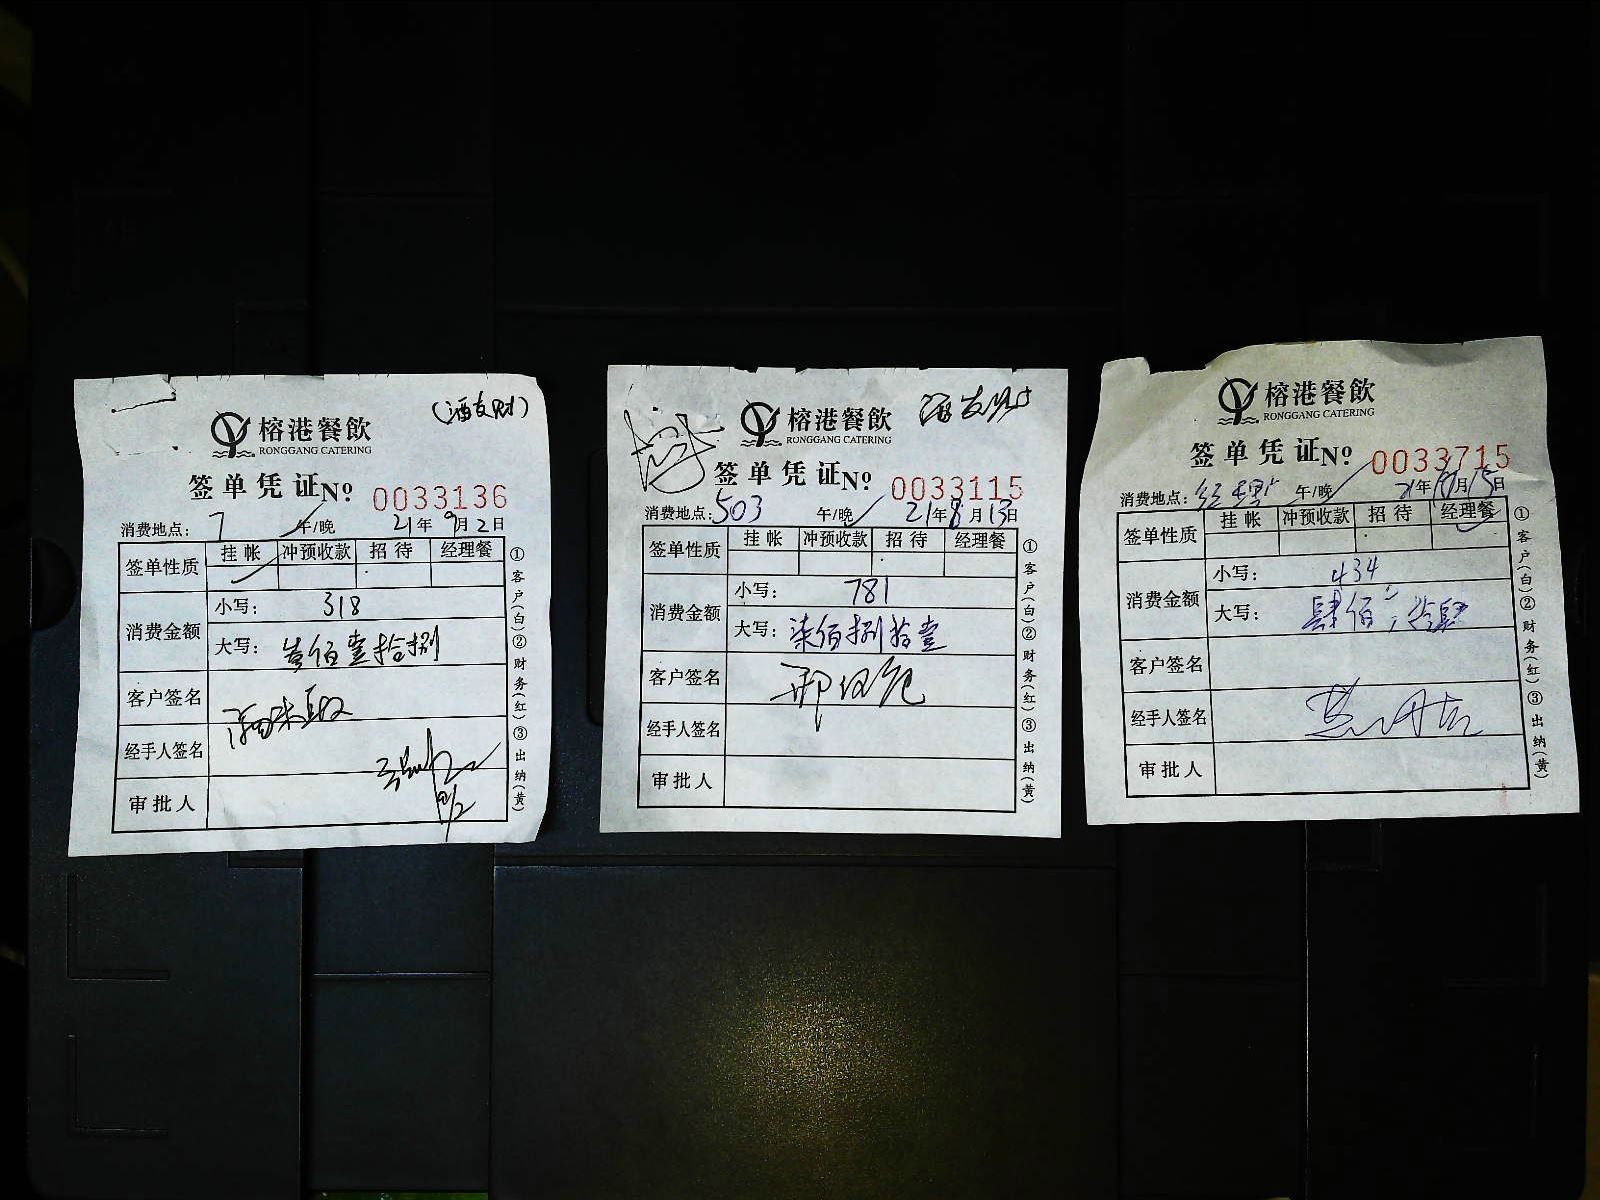 (酒友财)
榕港餐飲
RONGGANG CATERING
签单凭证 No 0033136
消费地点: 7 午/晚 21年9月2日
签单性质 挂帐 冲预收款 招待 经理餐
消费金额 小写: 318
大写: 叁佰壹拾捌
客户签名
经手人签名
审批人
9/2
①客户(白)②财务(红)③出纳(黄)
榕港餐飲
RONGGANG CATERING
签单凭证 No 0033115
消费地点: 503 午/晚 21年8月13日
签单性质 挂帐 冲预收款 招待 经理餐
消费金额 小写: 781
大写: 柒佰捌拾壹
客户签名
经手人签名
审批人
①客户(白)②财务(红)③出纳(黄)
榕港餐飲
RONGGANG CATERING
签单凭证 No 0033715
消费地点: 经理 午/晚 21年 月15日
签单性质 挂帐 冲预收款 招待 经理餐
消费金额 小写: 434
大写: 肆佰
客户签名
经手人签名
审批人
①客户(白)②财务(红)③出纳(黄)